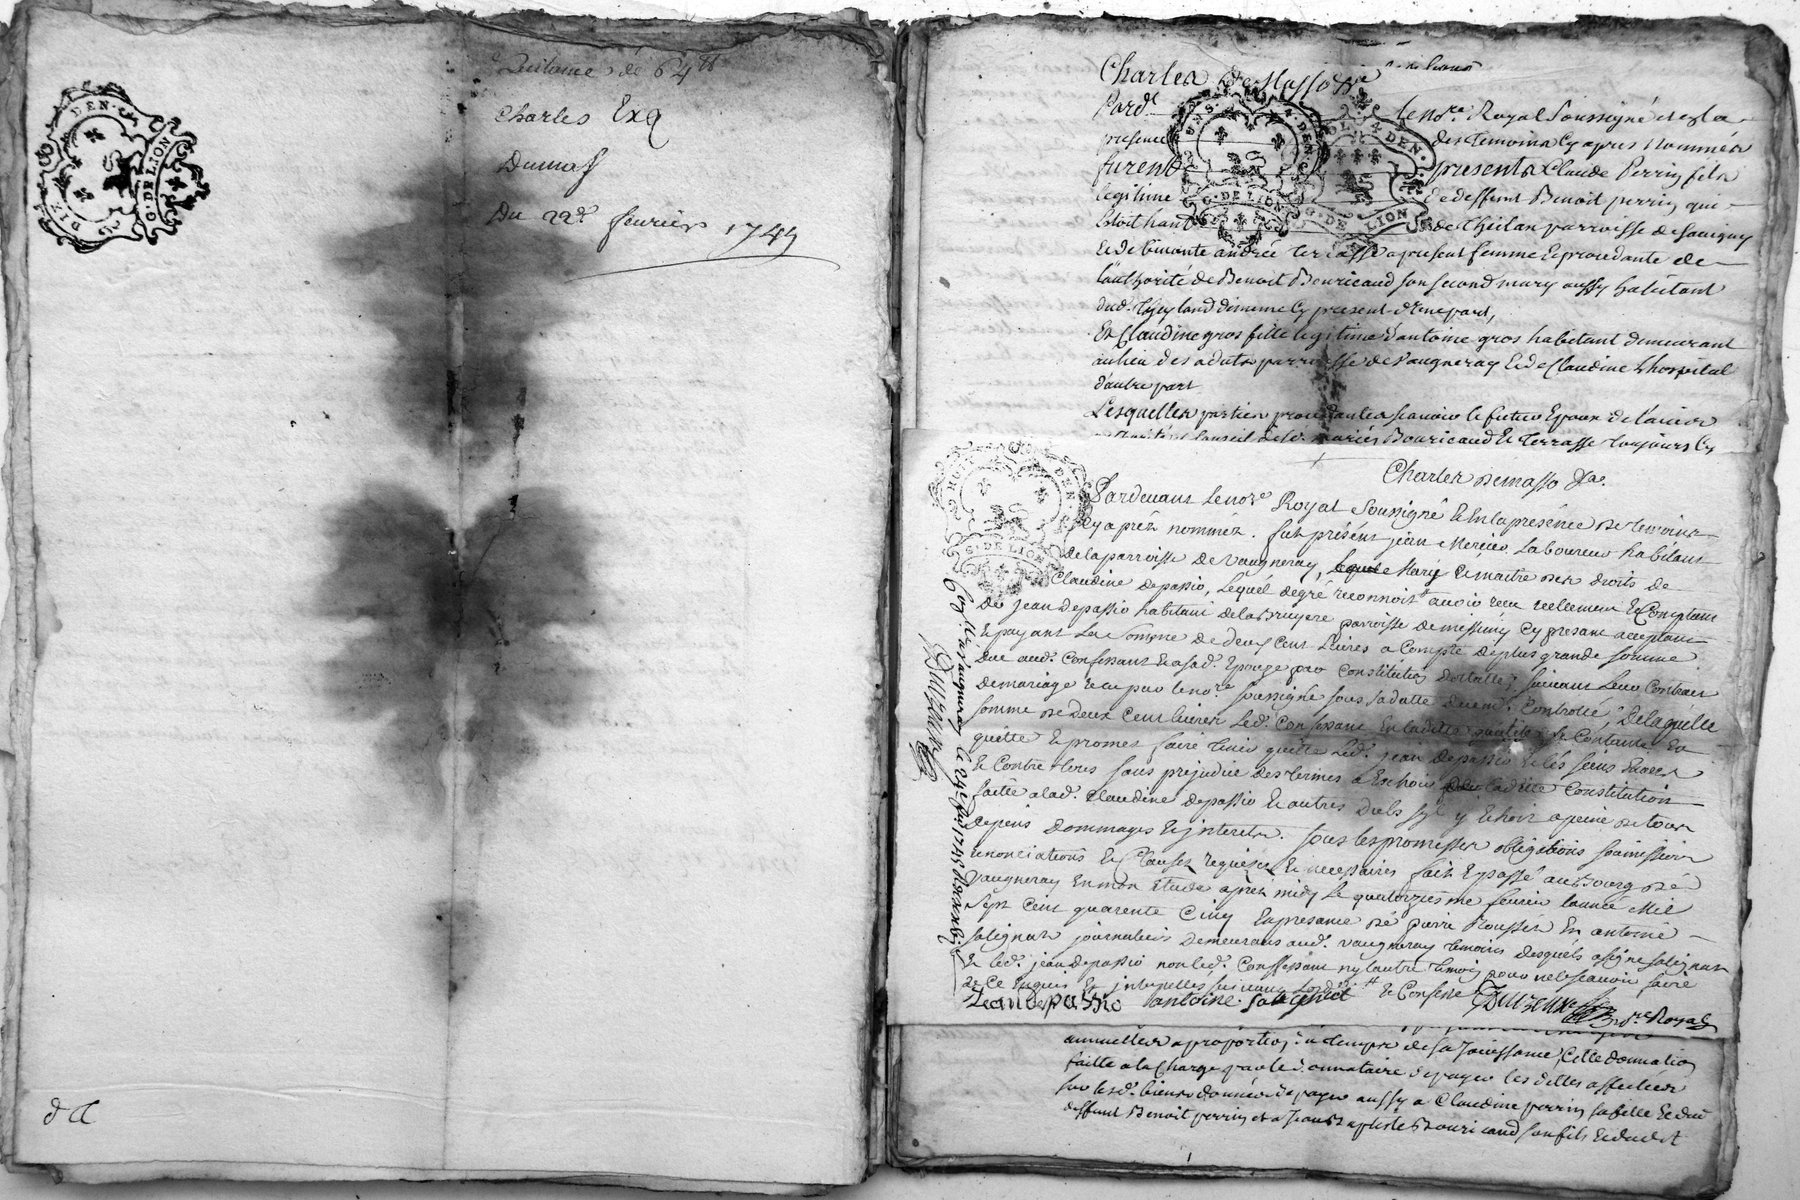 Quitance de 64 tt
Charles Exq
Dumas
Du 22e fevrier 1745
DIZ DEN
G. DE LION
d a
Charles De Masso
Pard.t le nore. Royal Soussigné et en la
presence des temoins cy apres nommés
furent presents Claude Perrin fils
legitime de deffunt Benoit perrin qui
estoit hant de Theilan parroisse de Savigny
et de vivante andrée terrasse a present femme et procedante de
l'authorité de Benoit Bouricaud son second mary aussy habitant
dud. present d'une part,
Et Claudine gros fille legitime d'antoine gros habitant demeurant
au lieu des adats parroisse de Vaugneray et de Claudine Lhospital
d'autre part
Lesquelles parties procedantes scavoir le futur Epoux de l'avis
conseil desd. mariés Bouricaud et Terrasse toujours cy
G. DE LION
Charles Demasso &a.
Pardevant le nore. Royal Soussigné et en la presence de temoins
cy aprés nommés. fut présent jean Mercier Laboureur habitant
de la parroisse de Vaugneray, Marÿ et maitre des droits de
Claudine depassio, Lequel de gré reconnoit avoir reçu reellement et Comptant
de jean depassio habitant de la Bruyere parroisse de messimy cy present acceptant
et payant La Somme de deux cent Livres a Compte de plus grande somme
due aud. Confessant et a sad. Epouse par constitution dotalle, suivant leur Contrat
de mariage reçu par le nore. soussigné sous sa datte duement Controllé, De laquelle
somme de Deux Cent livres led. Confessant en laditte qualité se Contente En
quitte et promet faire tenir quitte led. jean depassio et les siens Envers
et Contre tous sans prejudice des termes a Echoir de laditte Constitution
faitte a lad. Claudine depassio et autres droits syl y Echoit a peine de tous
depens dommages et interets. sous les promesses obligations soumissions
renonciations et Clauses requises et necessaires fait et passé au Bourg de
Vaugneray En mon étude aprés midy le quatorzieme fevrier l'année Mil
Sept Cent quarente Cinq En presance de pierre Rousset Et antoine
Salignat journaliers demeurans aud. Vaugneray temoins desquels a signé Salignat
et led. jean depassio non led. Confessant ny l'autre temoin pour ne le scavoir faire
de Ce Enquis Et interpellés suivant Lord.
Jean depassio antoine salignat Et Confessé nore. Royal
Cog. Vaugneray le 24e fév. 1745
annuelles a proportion du temps de sa Jouissance, Cette donnation
faitte a la Charge par le donnataire de payer les dettes affectées
sur lesd. biens donnés de payer aussy a Claudine perrin sa fille et dud
deffunt Benoit perrin et a Jean Baptiste Bouricaud son fils et dudit